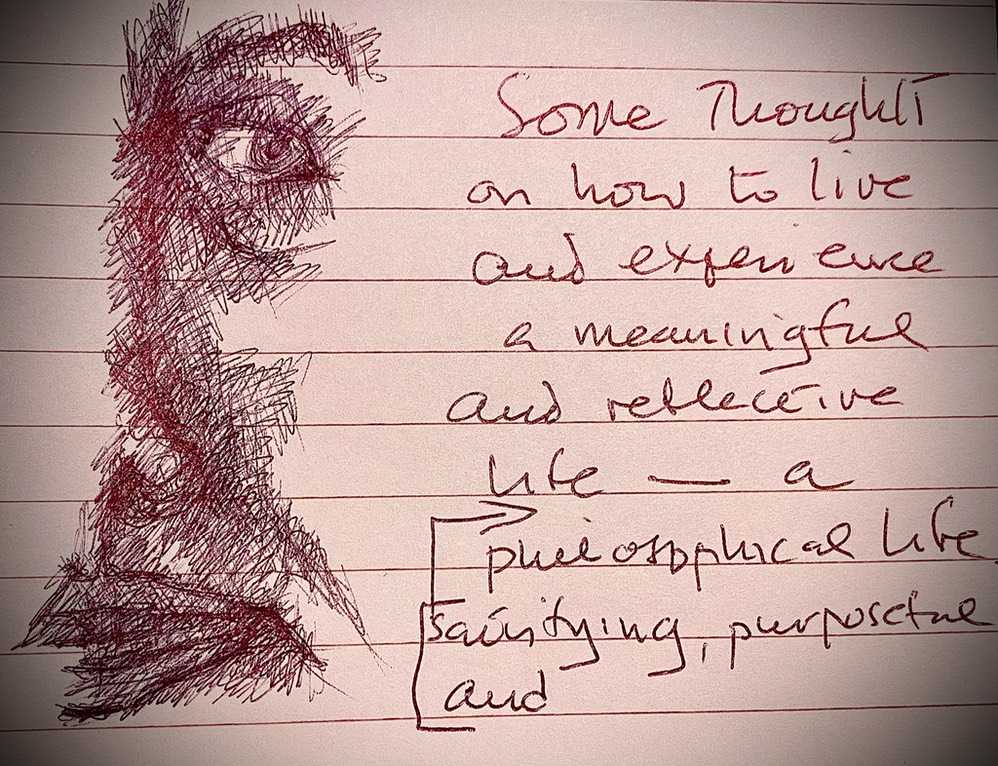 Some Thought
on how to live
and experience
a meaningful
and reflective
life — a
philosophical life
satisfying, purposeful
and